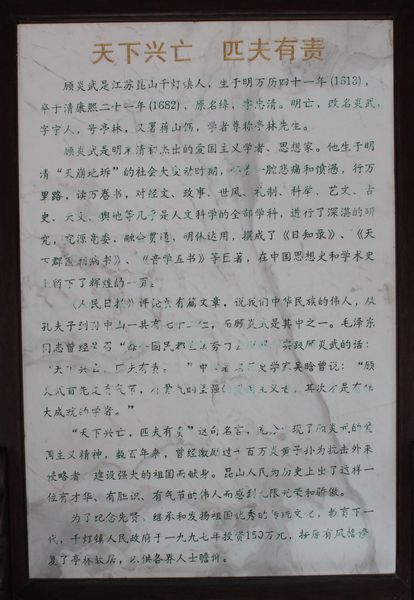 天下兴亡　匹夫有责
顾炎武是江苏昆山千灯镇人，生于明万历四十一年(1613)，
卒于清康熙二十一年(1682)，原名绛，字忠清。明亡，改名炎武，
字宁人，号亭林，又署蒋山佣，学者尊称亭林先生。
顾炎武是明末清初杰出的爱国主义学者、思想家。他生于明
清“天崩地坼”的社会大变动时期，一腔悲痛和愤懑，行万
里路，读万卷书，对经文、政事、世风、礼制、科举、艺文、古
史、天文、舆地等几乎是人文科学的全部学科，进行了深湛的研
究，究源竟委，融会贯通，明体达用，撰成了《日知录》、《天
下郡国利病书》、《音学五书》等巨著，在中国思想史和学术史
上留下了辉煌的一页。
《人民日报》评论员有篇文章，说我们中华民族的伟人，从
孔夫子到孙中山一共有七十二位，而顾炎武是其中之一。毛泽东
同志曾经号召 顾炎武的话：
“天下兴亡，匹夫有责。” 史学家吴晗曾说：“顾
炎武首先是有气节， 坚强的爱国主义者，其次才是有伟
大成就的学者。”
“天下兴亡，匹夫有责”这句名言，充分体现了顾炎武的爱
国主义精神，数百年来，曾经激励过千百万炎黄子孙为抗击外来
侵略者 建设强大的祖国而献身。昆山人民为历史上出了这样一
位有才华、有胆识、有气节的伟人而感到无限光荣和骄傲。
为了纪念先贤，继承和发扬祖国优秀的传统文化，教育下一
代，千灯镇人民政府于一九九七年投资150万元，按原有风格修
复了亭林故居，以供各界人士瞻仰。